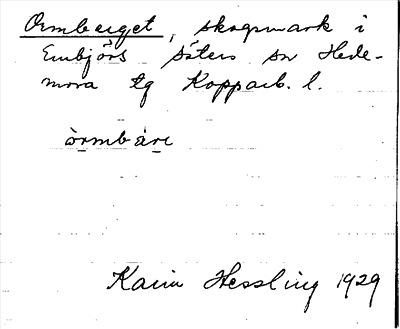 Ormberget, skogsmark i
Embjörs Säters sn Hede-
mora tg Kopparb. l.
òrmbàre
Karin Hessling 1929